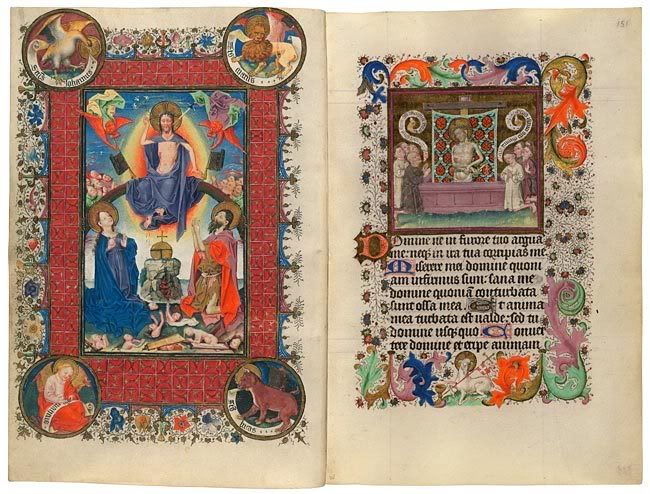 151
Johannes
Domine ne in furore tuo argua
me: neq in ira tua corripias me
Miserere mei domine quoni
am infirmus sum: sana me
domine quoniā conturbata
sunt ossa mea. Et anima
mea turbata est ualde: sed tu
domine usquequo Conuer
tere domine et eripe animam
lucas